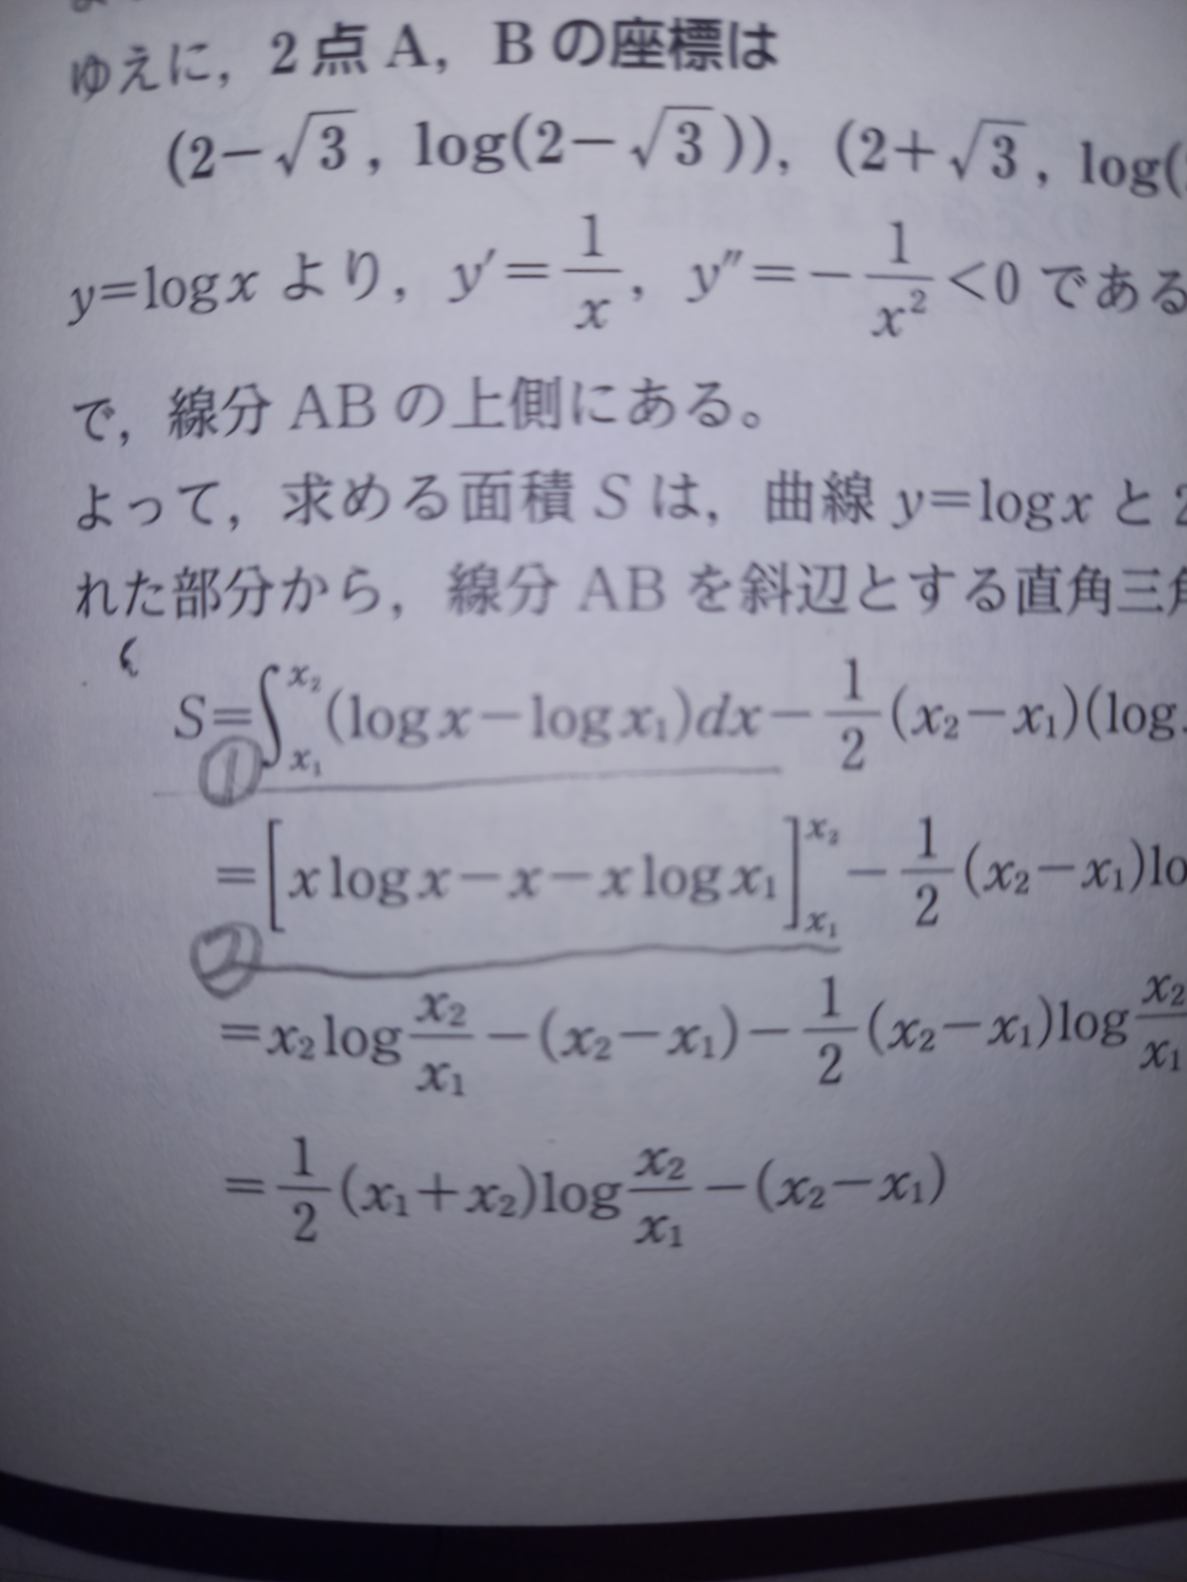 ゆえに，2点A，Bの座標は
(2−√3，log(2−√3))，(2+√3，log(
y=logx より，y′=1/x，y″=−1/x²<0 である
で，線分ABの上側にある。
よって，求める面積Sは，曲線 y=logx と 2
れた部分から，線分ABを斜辺とする直角三角
S=∫_{x₁}^{x₂}(logx−logx₁)dx−1/2(x₂−x₁)(log
①
=[xlogx−x−xlogx₁]_{x₁}^{x₂}−1/2(x₂−x₁)lo
②
=x₂log x₂/x₁−(x₂−x₁)−1/2(x₂−x₁)log x₂/x₁
=1/2(x₁+x₂)log x₂/x₁−(x₂−x₁)